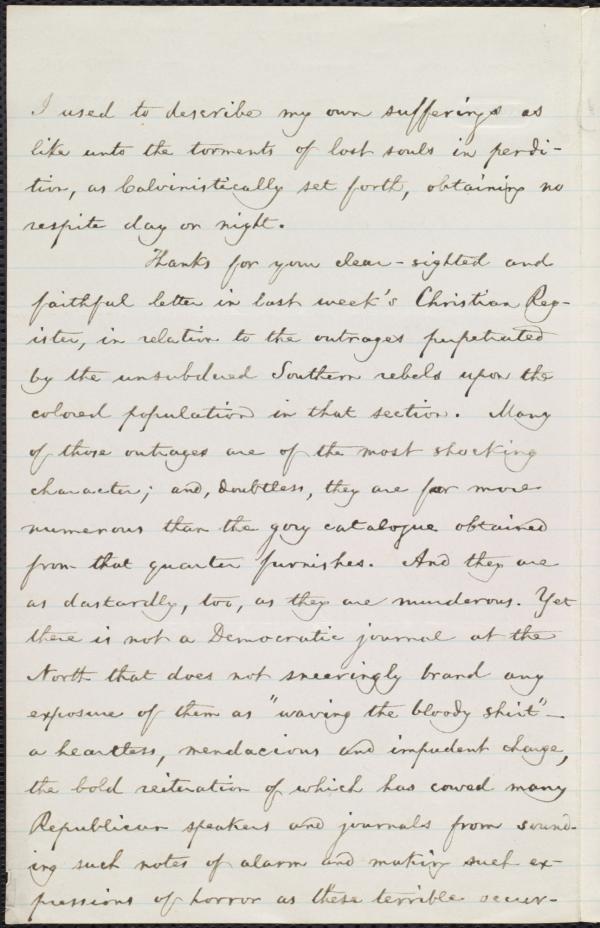 I used to describe my own sufferings as
like unto the torments of lost souls in perdi-
tion, as Calvinistically set forth, obtaining no
respite day or night.
Thanks for your clear-sighted and
faithful letter in last week's Christian Reg-
ister, in relation to the outrages perpetrated
by the unsubdued Southern rebels upon the
colored population in that section. Many
of those outrages are of the most shocking
character; and, doubtless, they are far more
numerous than the gory catalogue obtained
from that quarter furnishes. And they are
as dastardly, too, as they are murderous. Yet
there is not a Democratic journal at the
North that does not sneeringly brand any
exposure of them as "waving the bloody shirt"—
a heartless, mendacious and impudent charge,
the bold reiteration of which has cowed many
Republican speakers and journals from sound-
ing such notes of alarm and making such ex-
pressions of horror as these terrible occur-